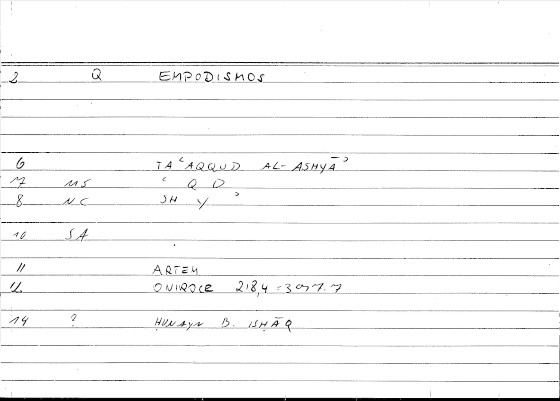 2 Q EMPODISMOS
6 TAʿAQQUD AL-ASHYĀʾ
7 MS ʿ Q D
8 NC SH Y ʾ
10 SA
11 ARTEM
12 ONIROCR 218,4 = 397.7
14 ? ḤUNAYN B. ISḤĀQ